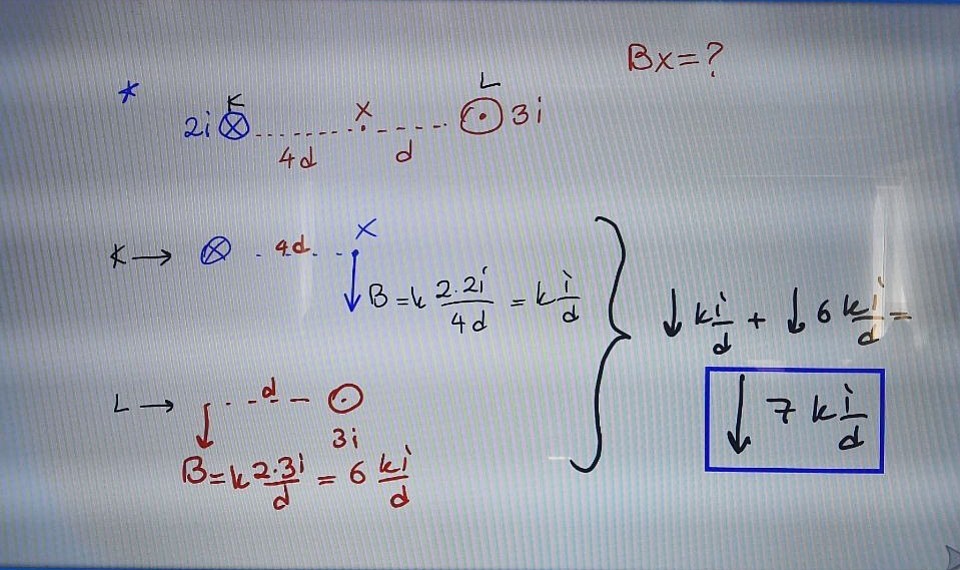 Bx=?
*
K
X
L
2i
3i
4d
d
K →
4d
X
B = k 2.2i/4d = k i/d
L →
d
3i
B = k 2.3i/d = 6 ki/d
↓ ki/d + ↓ 6 ki/d =
↓ 7 ki/d